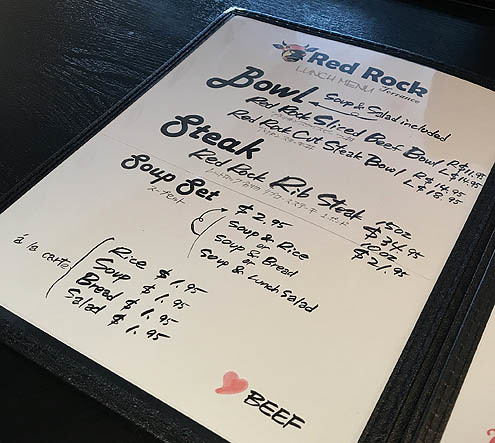 Red Rock
LUNCH MENU Torrance
Bowl Soup & Salad included
Red Rock Sliced Beef Bowl R $11.95
L $14.95
Red Rock Cut Steak Bowl R $14.95
L $18.95
Steak
Red Rock Rib Steak 15oz
$34.95
10oz
$21.95
Soup Set $2.95
スープセット
Soup & Rice
or
Soup & Bread
or
Soup & Lunch Salad
á la carte
Rice $1.95
Soup $1.95
Bread $1.95
Salad $1.95
BEEF